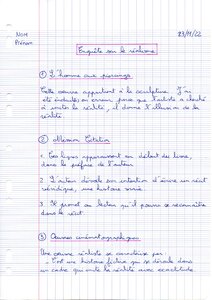 Nom
Prénom
23/11/22
Enquête sur le réalisme
① L'homme aux
Cette œuvre appartient à la sculpture. J'ai
été induit en erreur, parce que l'artiste a cherché
à imiter la réalité, il donne l'illusion de la
réalité.
② Mission Citation
1. Ces lignes apparaissent en début de livre,
dans la préface de l'auteur.
2. L'auteur dévoile son intention d'écrire un récit
véridique, une histoire vraie.
3. Il promet au lecteur qu'il pourra se reconnaître
dans le récit.
③ Œuvres cinématographiques
Une œuvre réaliste se caractérise par :
- C'est une histoire fictive qui se déroule dans
un cadre qui imite la réalité avec exactitude.